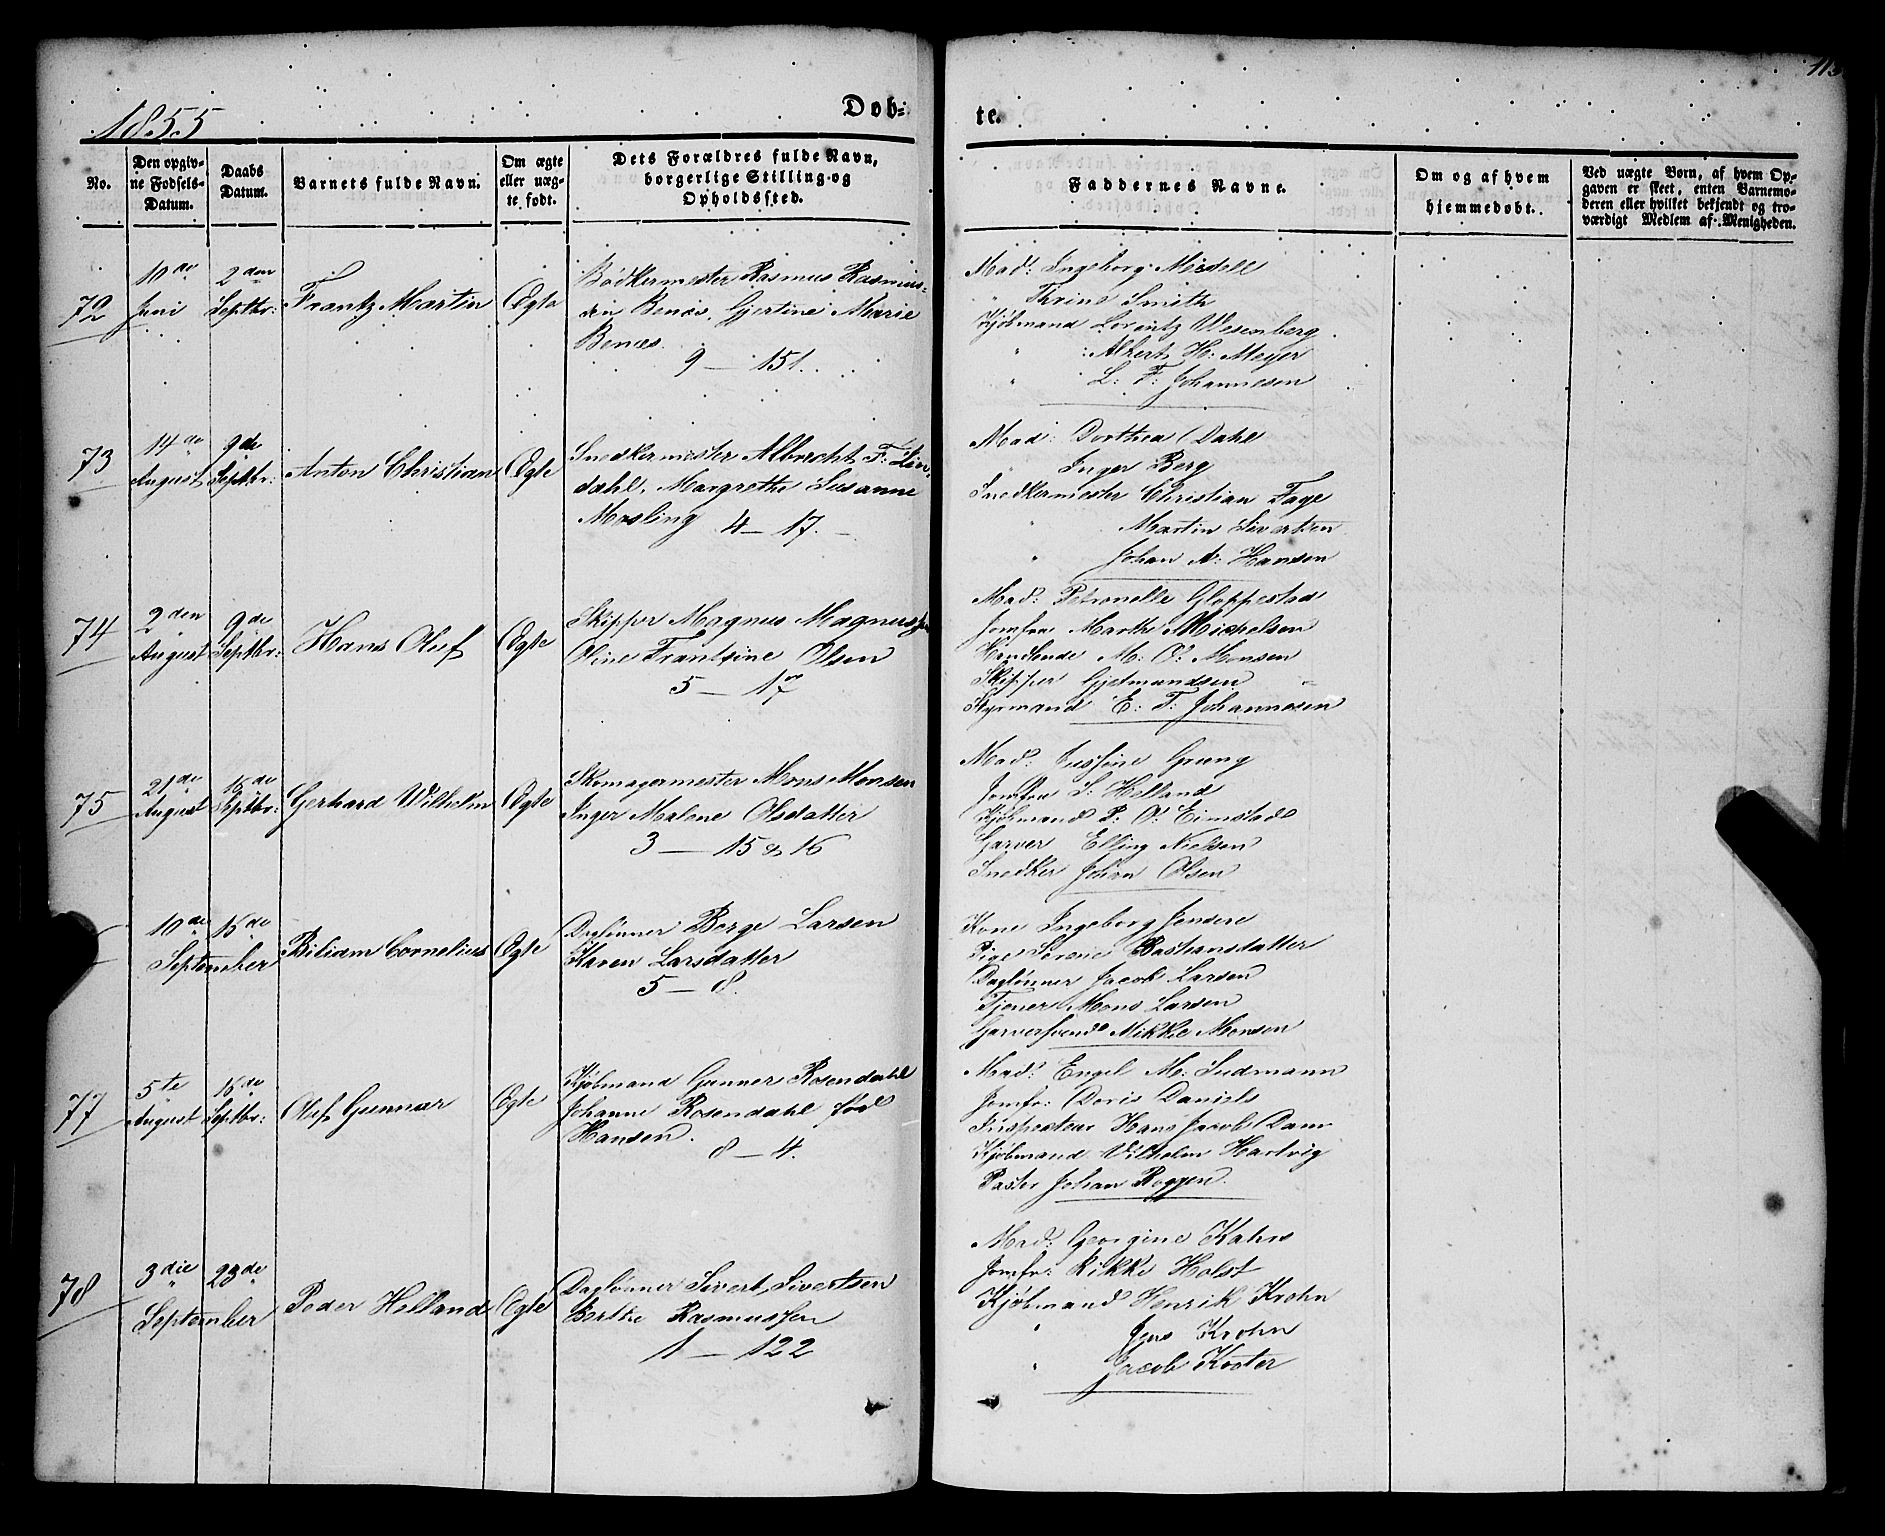 113
1855
Døb-
te.
No.
Den opgiv-
ne Fødsels-
Datum.
Daabs
Datum.
Barnets fulde Navn.
Om ægte
eller uæg-
te født.
Dets Forældres fulde Navn,
borgerlige Stilling og
Opholdssted.
Faddernes Navne.
Om og af hvem
hjemmedøbt.
Ved uægte Børn, af hvem Op-
gaven er skeet, enten Barnemo-
deren eller hvilket bekjendt og tro-
værdigt Medlem af Menigheden.
72
10de
Juni
2den
Septbr:
Frantz Martin
Ægte
Bødkermester Rasmus Rasmus-
sen Benæs, Gjertine Marie
Benæs.
9 — 151.
Mad: Ingeborg Misdell
" Thrine Smith
Kjøbmand Lorentz Wesenberg
" Albert H: Meyer
" L: F: Johannesen
73
14de
August
9de
Septbr:
Anton Christian
Ægte
Snedkermester Albrecht F: Lin-
dahl, Margrethe Susanne
Mosling 4 — 17.
Mad: Dorthea Dahl
" Inger Berg
Snedkermester Christian Faye
" Martin Sivertsen
" Johan A: Hansen
74
2den
August
9de
Septbr:
Hans Oluf
Ægte
Skipper Magnus Magnussen
Oline Frantzine Olsen
5 — 17
Mad: Petronelle Gloppestad
Jomfru Marthe Michelsen
Handlende M: O: Monsen
Skipper Gjetmundsen
Styrmand E: T: Johannesen
75
21de
August
16de
Septbr:
Gerhard Wilhelm
Ægte
Skomagermester Mons Monsen
Inger Malene Olsdatter
3 — 15 & 16
Mad: Grung
Jomfru S: Helland
Kjøbmand P: O: Eimstad
Garver Elling Nielsen
Snedker Johan Olsen
10de
16de
September
Biliam Cornelius
Ægte
Daglønner Børge Larsen
Karen Larsdatter
5 — 8.
Kone Ingeborg Jensen
Pige Serene Bastiansdatter
Daglønner Jacob Larsen
Tjener Mons Larsen
Garversvend Mikkel Monsen
77
5te
August
16de
Septbr:
Oluf Gunnar
Ægte
Kjøbmand Gunner Rosendahl
Johanne Rosendahl fød
Hansen.
8 — 4.
Mad: Engel M: Sudmann
Jomfr: Doris Daniels
Inspecteur Hans Jacob Dam
Kjøbmand Vilhelm Hartvig
Pastor Johan Roggen.
78
3die
23de
September
Peder Helland
Ægte
Dagløner Sivert Sivertsen
Berthe Rasmussen
1 — 122
Mad: Georgine Kahrs
Jomfr: Rikke Holst
Kjøbmand Henrik Krohn
" Jens Krohn
" Jacob Koster